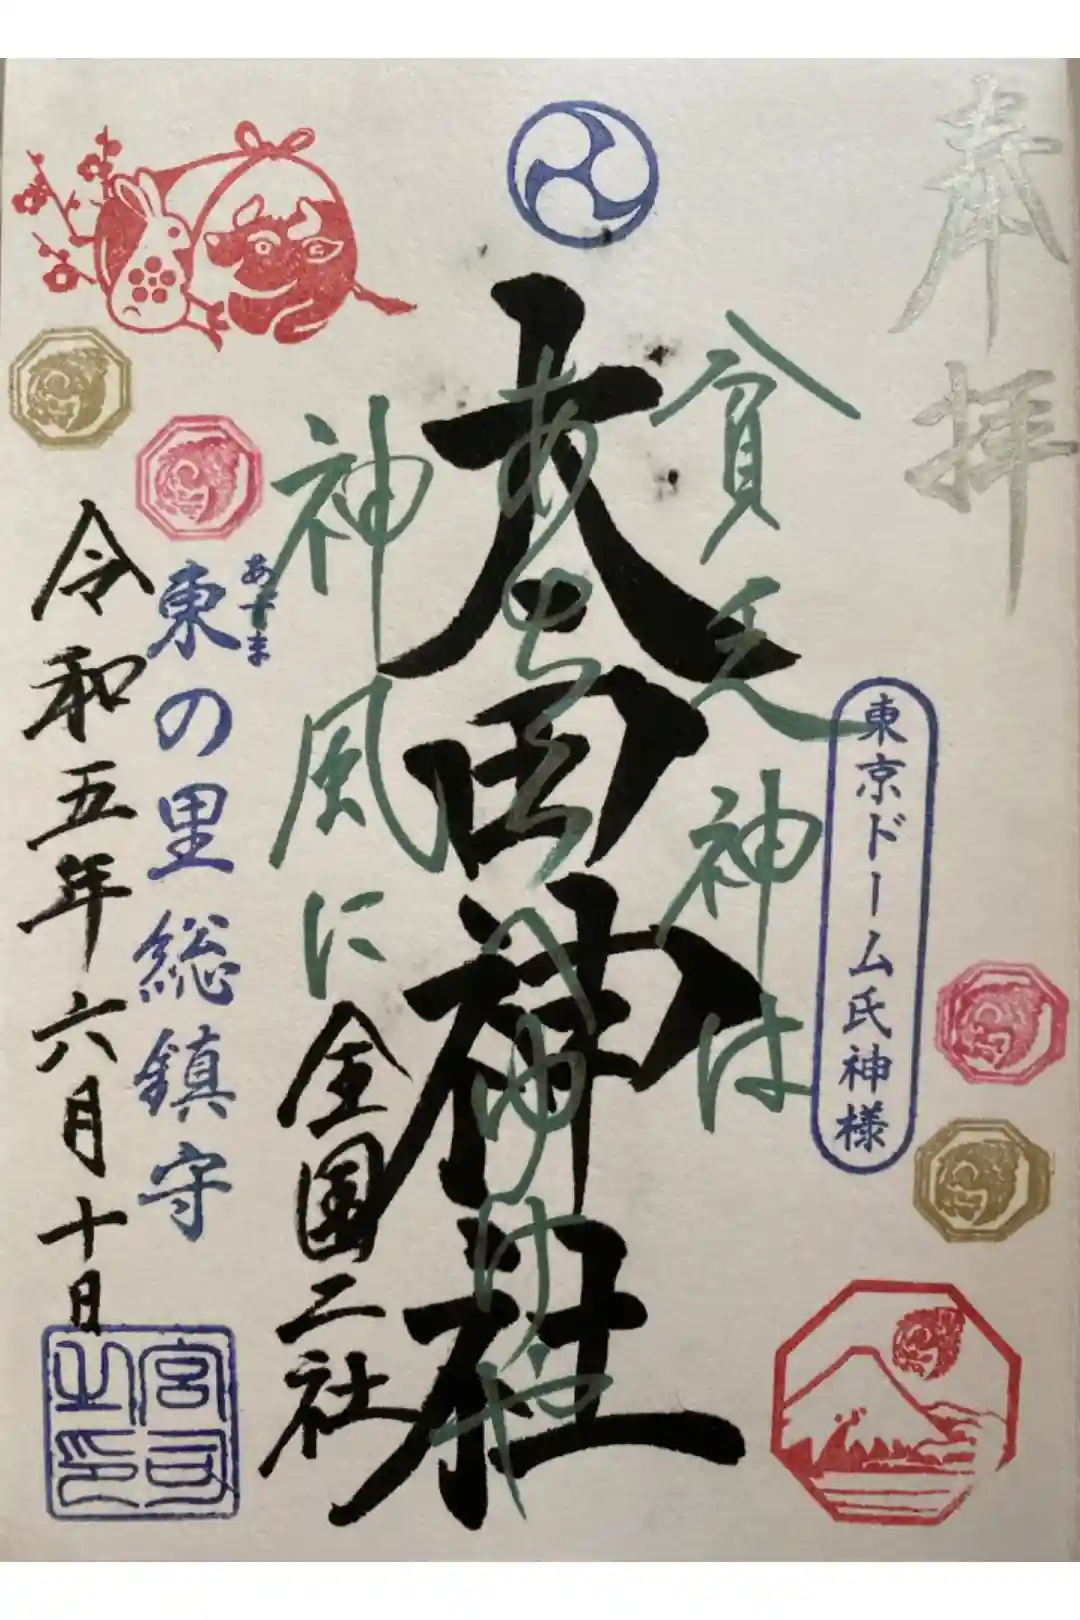 奉拝
東京ドーム氏神様
貧乏神は
あちらへゆけや
神風に
太田神社
全国二社
あずま
東の里総鎮守
令和五年六月十日
宮司之印